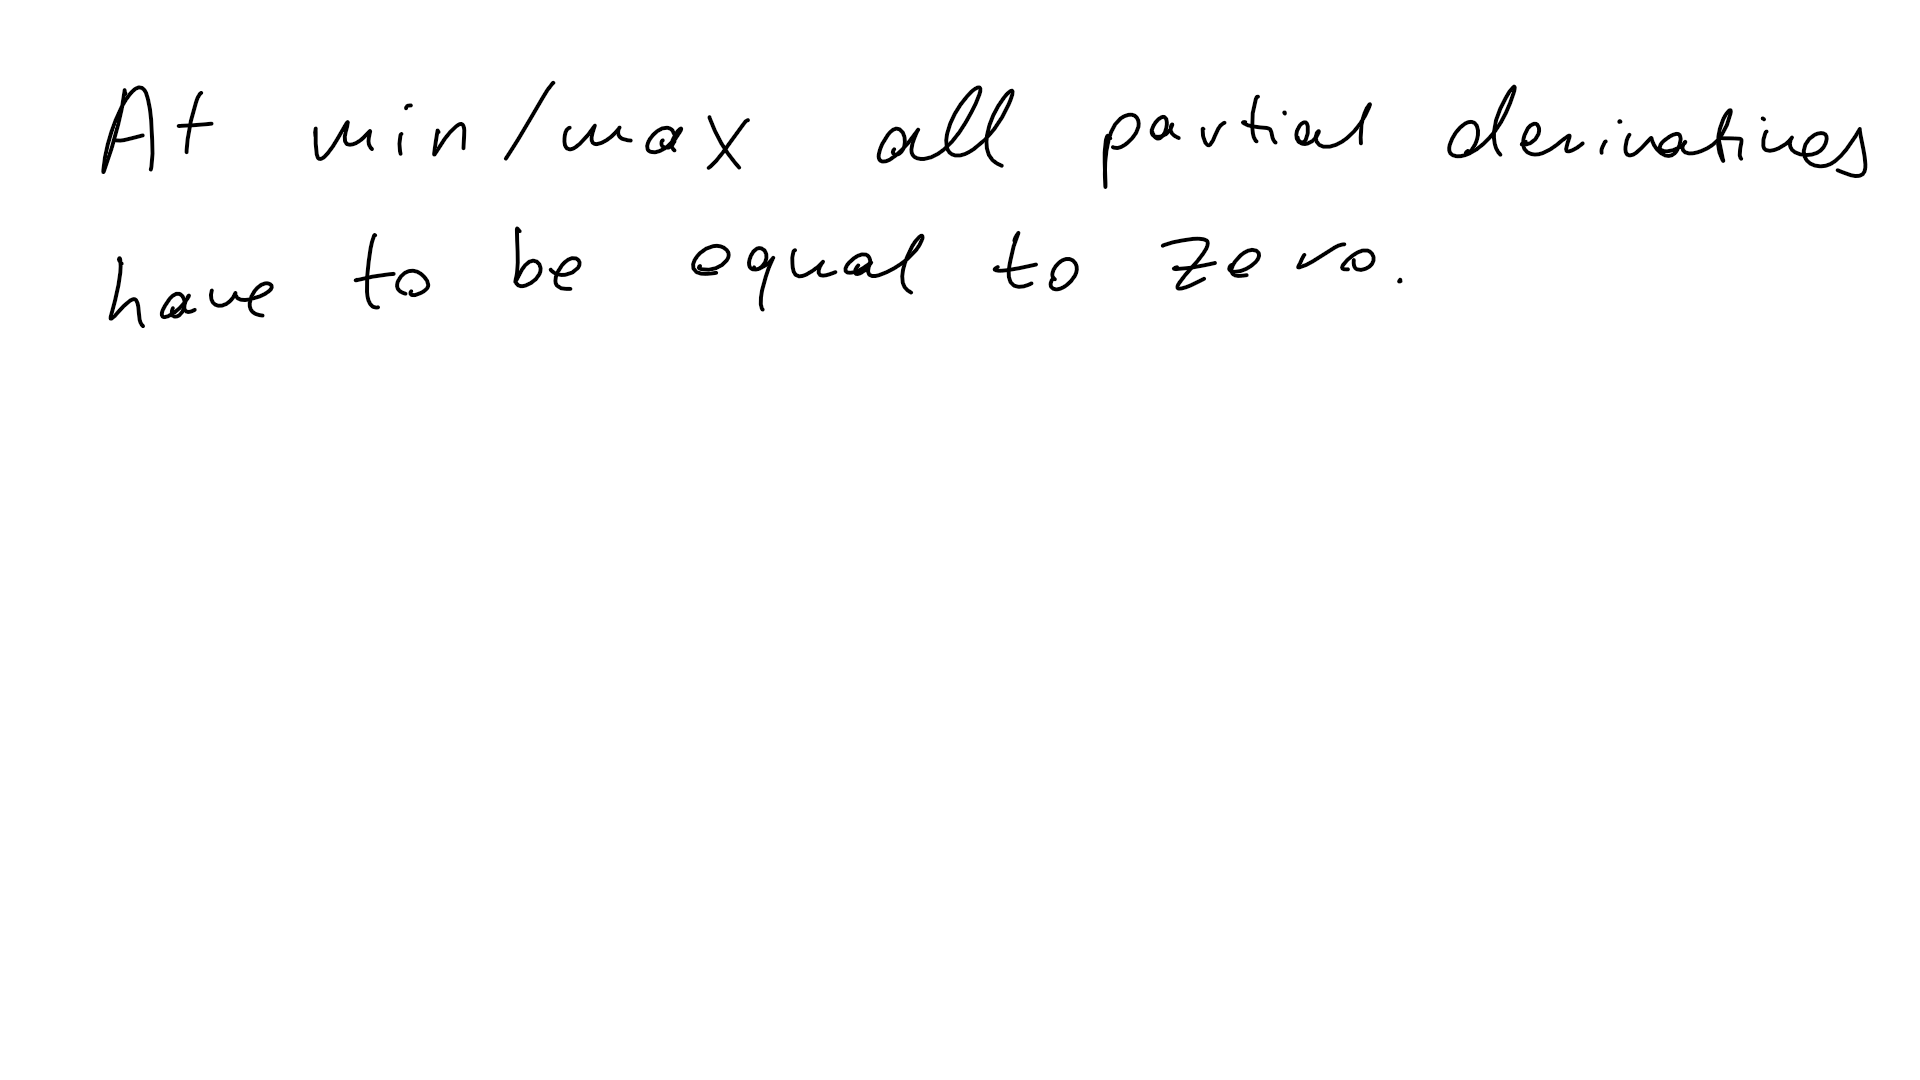 At min/max all partial derivatives
have to be equal to zero.